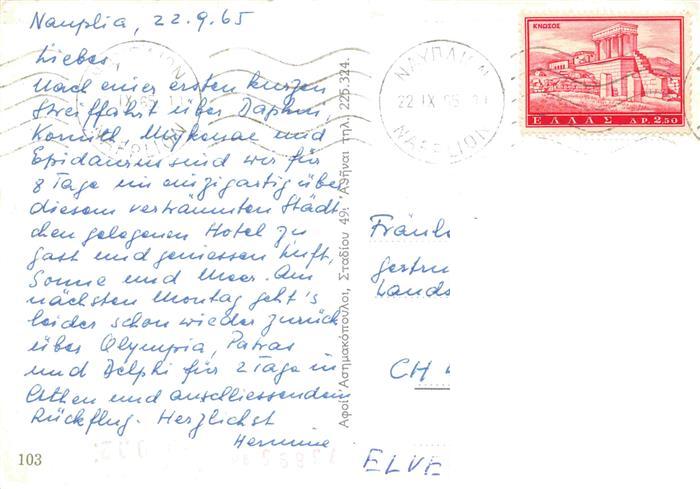 Nauplia, 22.9.65
Liebes
Nach einer ersten kurzen
Streiffahrt über Daphni,
Korinth, Mykenae und
Epidaurus sind wir für
8 Tage im einzigartig über
diesem verträumten Städt
chen gelegenen Hotel zu
gast und geniessen Luft,
Sonne und Meer. Am
nächsten Montag geht's
leider schon wieder zurück
über Olympia, Patras
und Delphi für 2 Tage in
Athen und anschliessendem
Rückflug. Herzlichst
Hermine
103
Αφοί Ἀσημακόπουλοι, Σταδίου 49. Ἀθῆναι τηλ. 225.324.
ΝΑΥΠΛΙΟΝ
22 IX 65
NAFPLION
ΚΝΩΣΟΣ
ΕΛΛΑΣ ΔΡ. 2,50
Fräul
Lands
CH
ELVE